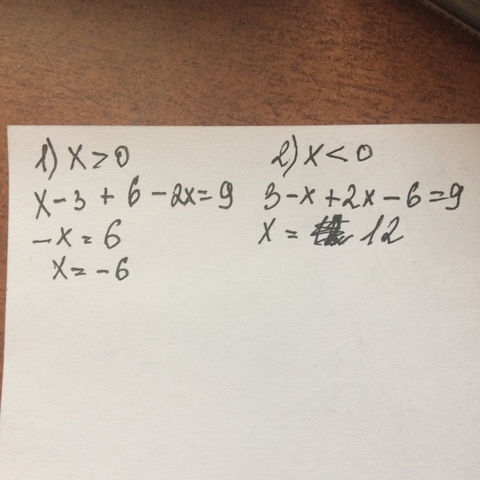 1) x > 0
x - 3 + 6 - 2x = 9
- x = 6
x = - 6
2) x < 0
3 - x + 2x - 6 = 9
x = 12